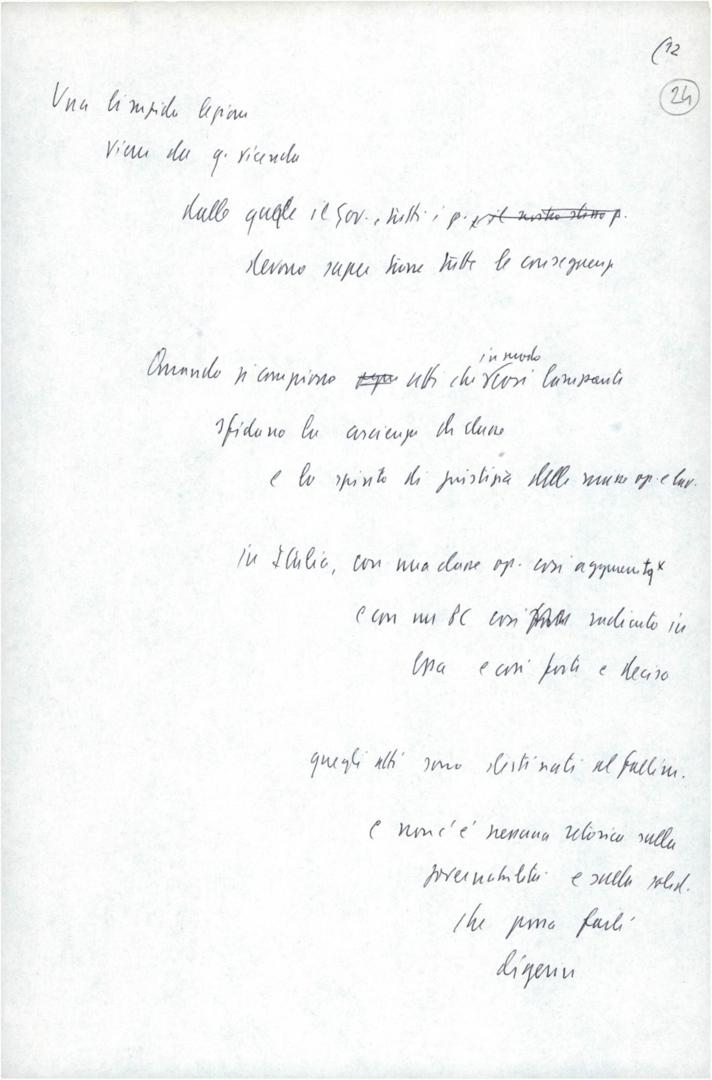 (12
24
Una limpida lezione
viene da q. vicenda
dalla quale il Gov., tutti i p. e il nostro stesso p.
devono saper trarre tutte le conseguenze
Quando si compiono atti che
in modo
così lampante
sfidano la coscienza di classe
e lo spirito di giustizia delle masse op. e lav.
in Italia, con una classe op. così agguerrita
e con un PC così radicato in
essa e così forte e deciso
quegli atti sono destinati al fallim.
e non c'è nessuna retorica sulla
governabilità e sulla solid.
che possa farli
digerire